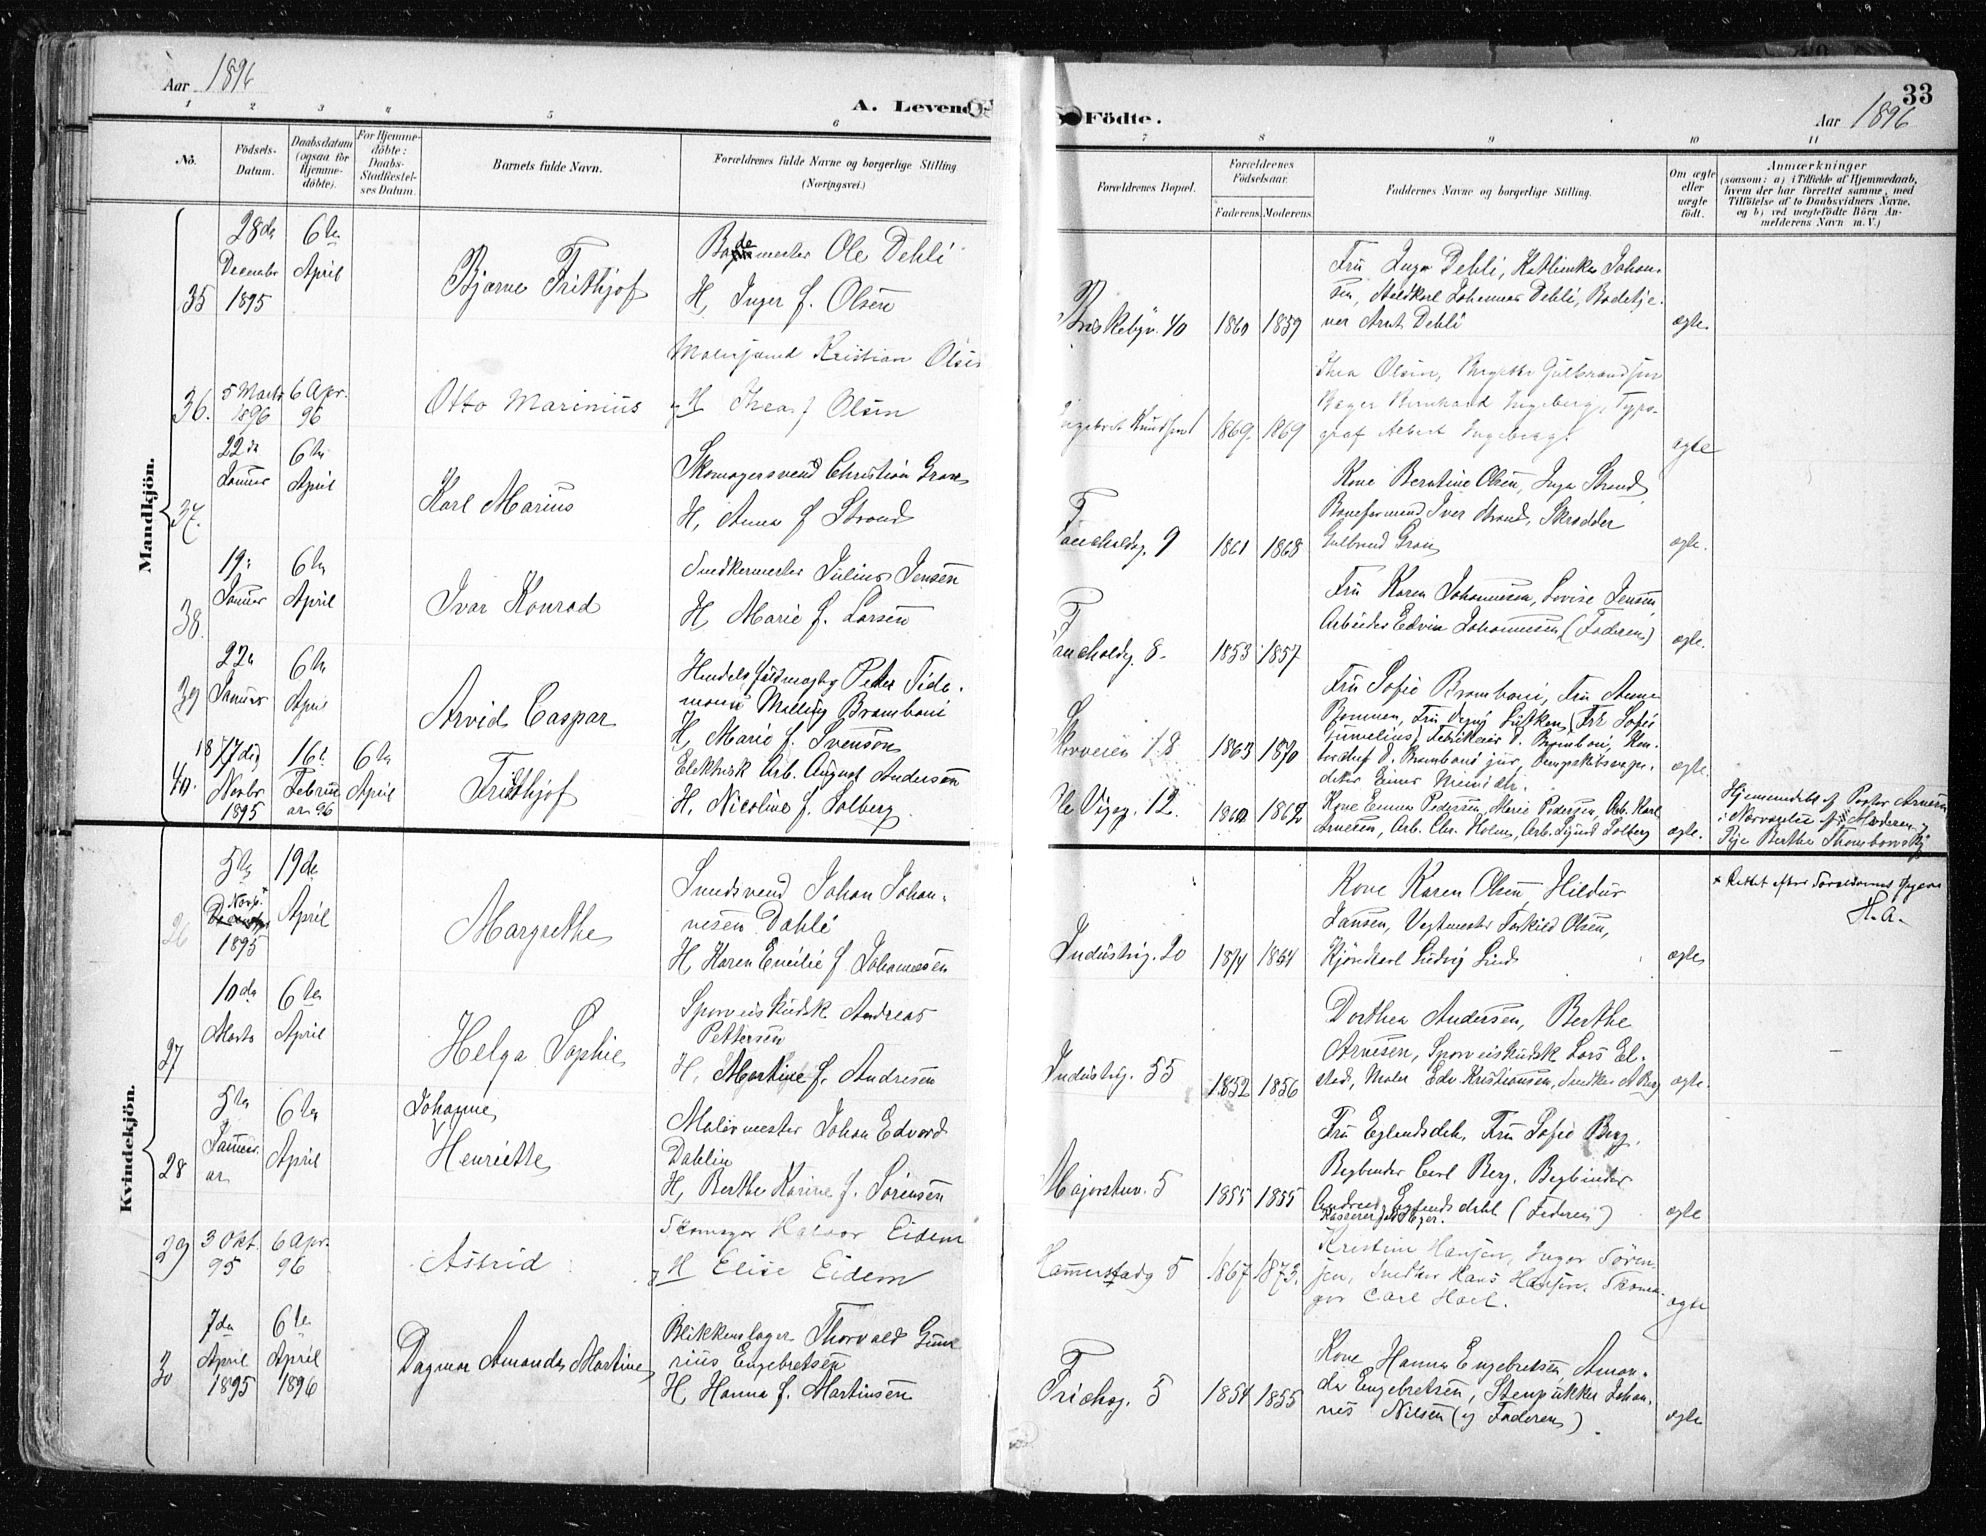 Aar 1896
A. Levende
Födte.
33
Aar 1896
1 2 3 4 5 6 7 8 9 10 11
No.
Födsels-Datum.
Daabsdatum (ogsaa for Hjemme-döbte).
For Hjemme-döbte: Daabs-Stadfæstel-ses Datum.
Barnets fulde Navn.
Forældrenes fulde Navne og borgerlige Stilling (Næringsvei.)
Forældrenes Bopæl.
Forældrenes Födselsaar.
Faderens. Moderens.
Faddernes Navne og borgerlige Stilling.
Om ægte eller uægte födt.
Anmærkninger
(saasom: a) i Tilfælde af Hjemmedaab, hvem der har forrettet samme, med Tilföielse af to Daabsvidners Navne, og b) ved uægtefödte Börn An-melderens Navn m. V.)
Mandkjön.
35
28de December 1895
6te April
Bjarne Frithjof
Bademester Ole Dehli
H, Inger f. Olsen
Briskebyv. 40
1860 1859
Fru Inga Dehli, Kathinka Johan-
sen, Johannes Dehli, Badetje-
ner Arnt Dehli
ægte.
36.
5 Marts 1896
6 Apr. 96
Otto Marinius
Malersvend Kristian Olsen
og H Thea f Olsen
1869. 1869
Thea Olsen, Birgitte Gulbrandsen
Bager Bernhard Ingeberg, Typo-
graf Albert Ingeberg.
ægte
37.
22de Januar
6te April
Karl Marius
Skomagersvend Christian Gran
H, Anna f Strand
Fauchaldsg. 9
1861 1868
Kone Berntine Olsen, Inga Strand,
Iver Strand, Skrædder
Gulbrand Gran
ægte.
38.
19. Januar
6te April
Ivar Konrad
Snedkermester Julius Jensen
H, Marie f. Larsen
Fauchaldsg. 8.
1853 1857
Fru Karen Johannesen, Lovise Jensen
Arbeider Edvin Johannesen (Faderen)
ægte.
39
22de Januar
6te April
Arvid Caspar
Handelsfuldmægtig Peter Tide-
mann Malling Bramboni
H, Marie f. Svenson
Skovveien 18
1863 1870
Fru Sofie Bramboni, Fru Anna
Lütken, (Frk Sofie
Gumelius), Fabrikeier D. Bramboni, Kon-
torchef D. Bramboni jun,
Einar
ægte.
40.
17de Novbr 1895
16de Februar 96
6te April
Frithjof
Elektrisk Arb. August Andersen
H, Nicoline f. Solberg
12.
1862
Kone Emma Pedersen, Marie Pedersen, Arb. Karl
Arnesen, Arb. Chr. Holm, Arb. Sigurd Solberg
ægte.
Hjemmedøbt af Pastor Arnesen
i Nærværelse af Moderen og
Pige Berthe
Kvindekjön.
26
5te Novb.x 1895
19de April
Margrethe
Smedsvend Johan Johan-
nesen Dahli
H, Karen Emilie f. Johannesen
Industrig. 20
1871 1864
Kone Karen Olsen, Hildur
Jansen, Vegtmester Torkild Olsen,
Ludvig Lind
ægte
x Rettet efter Forældrenes Opgave
H. A.
27
10de Marts
6te April
Helga Sophie
Sporveiskudsk Andreas
Pettersen
H, Martine f. Andresen
Industrig. 55
1852 1856
Dorthea Andersen, Berthe
Arnesen, Sporveiskudsk Lars El-
stad, Maler Edv Kristiansen, Snedker A Berg
ægte.
28
5te Januar
6te April
Johanne
Henriette
Malermester Johan Edvard
Dahlin
H, Berthe Karine f. Sørensen
Majorstuv. 5
1855 1855
Fru Eglendsdch, Fru Sofie Berg.
Bogbinder Carl Berg. Bogbinder
(Faderen)
ægte
29
3 Okt. 95
6 Apr. 96
Astrid
Skomager Halvor Eidem
og H Elise Eidem
Homansstadg 5
1867 1873.
Kristine Hansen, Inger Sören-
sen, Snedker Hans Hansen, Skoma-
ger Carl
ægte
30
7de April 1895
6te April 1896
Dagmar Amanda Martine
Blikkenslager Thorvald Gune-
rius Engebretsen
H, Hanna f. Martinsen
5
1854 1855
Kone Hanna Engebretsen, Aman-
da Engebretsen, Stenpukker Johan-
nes Nilsen (og Faderen)
ægte